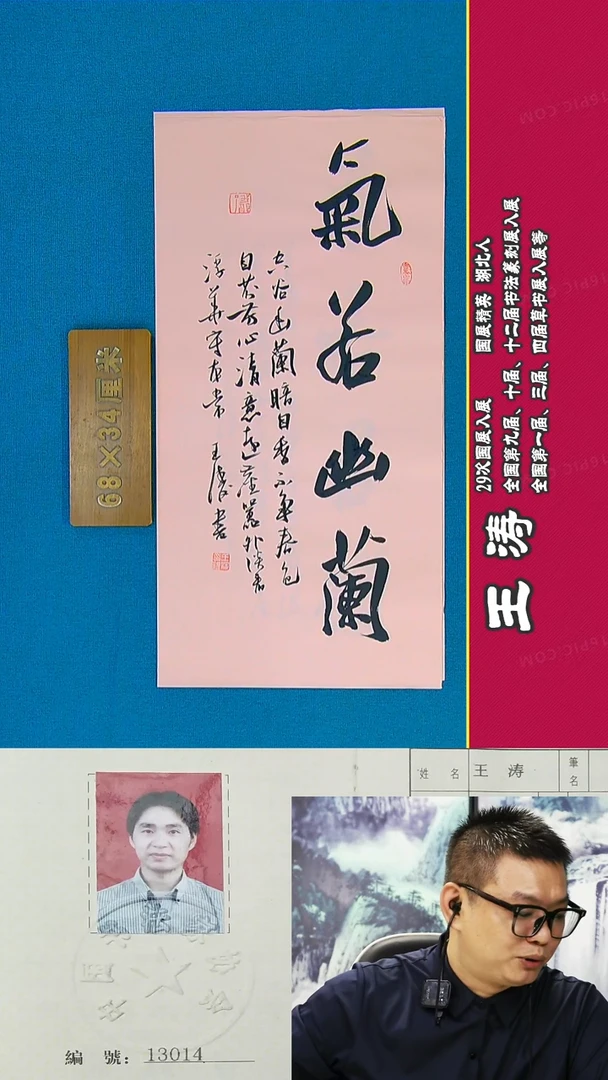 氣若幽蘭
空谷幽蘭暗自香不争春色
自芬芳心清意遠塵囂外淡看
浮華守本常 王濤書
68×34厘米
王涛
29次国展入展 国展精英 湖北人
全国第九届、十届、十二届书法篆刻展入展
全国第一届、三届、四届草书展入展等
姓名 王涛 筆名
編號：13014